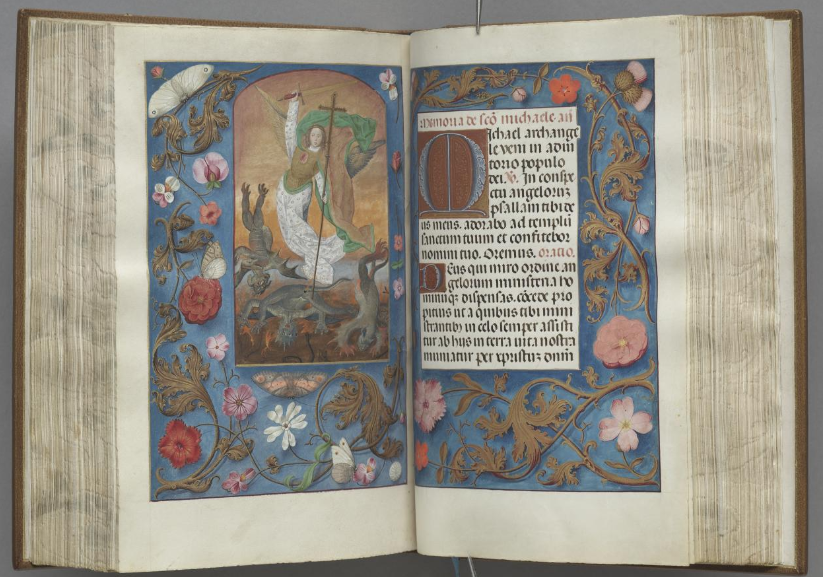 Memoria de scō michaele ar
Michael archange
le veni in adiu
torio populo
dei. V. In conspe
ctu angelorum
psallam tibi de
us meus. adorabo ad templū
sanctum tuum et confitebor
nomini tuo. Oremus. oratio.
Deus qui miro ordine an
gelorum ministeria ho
minūqȝ dispensas. cōcede pro
pitius ut a quibus tibi mini
strantibȝ in celo semper assisti
tur ab hijs in terra vita nostra
muniatur per xpristum dnm